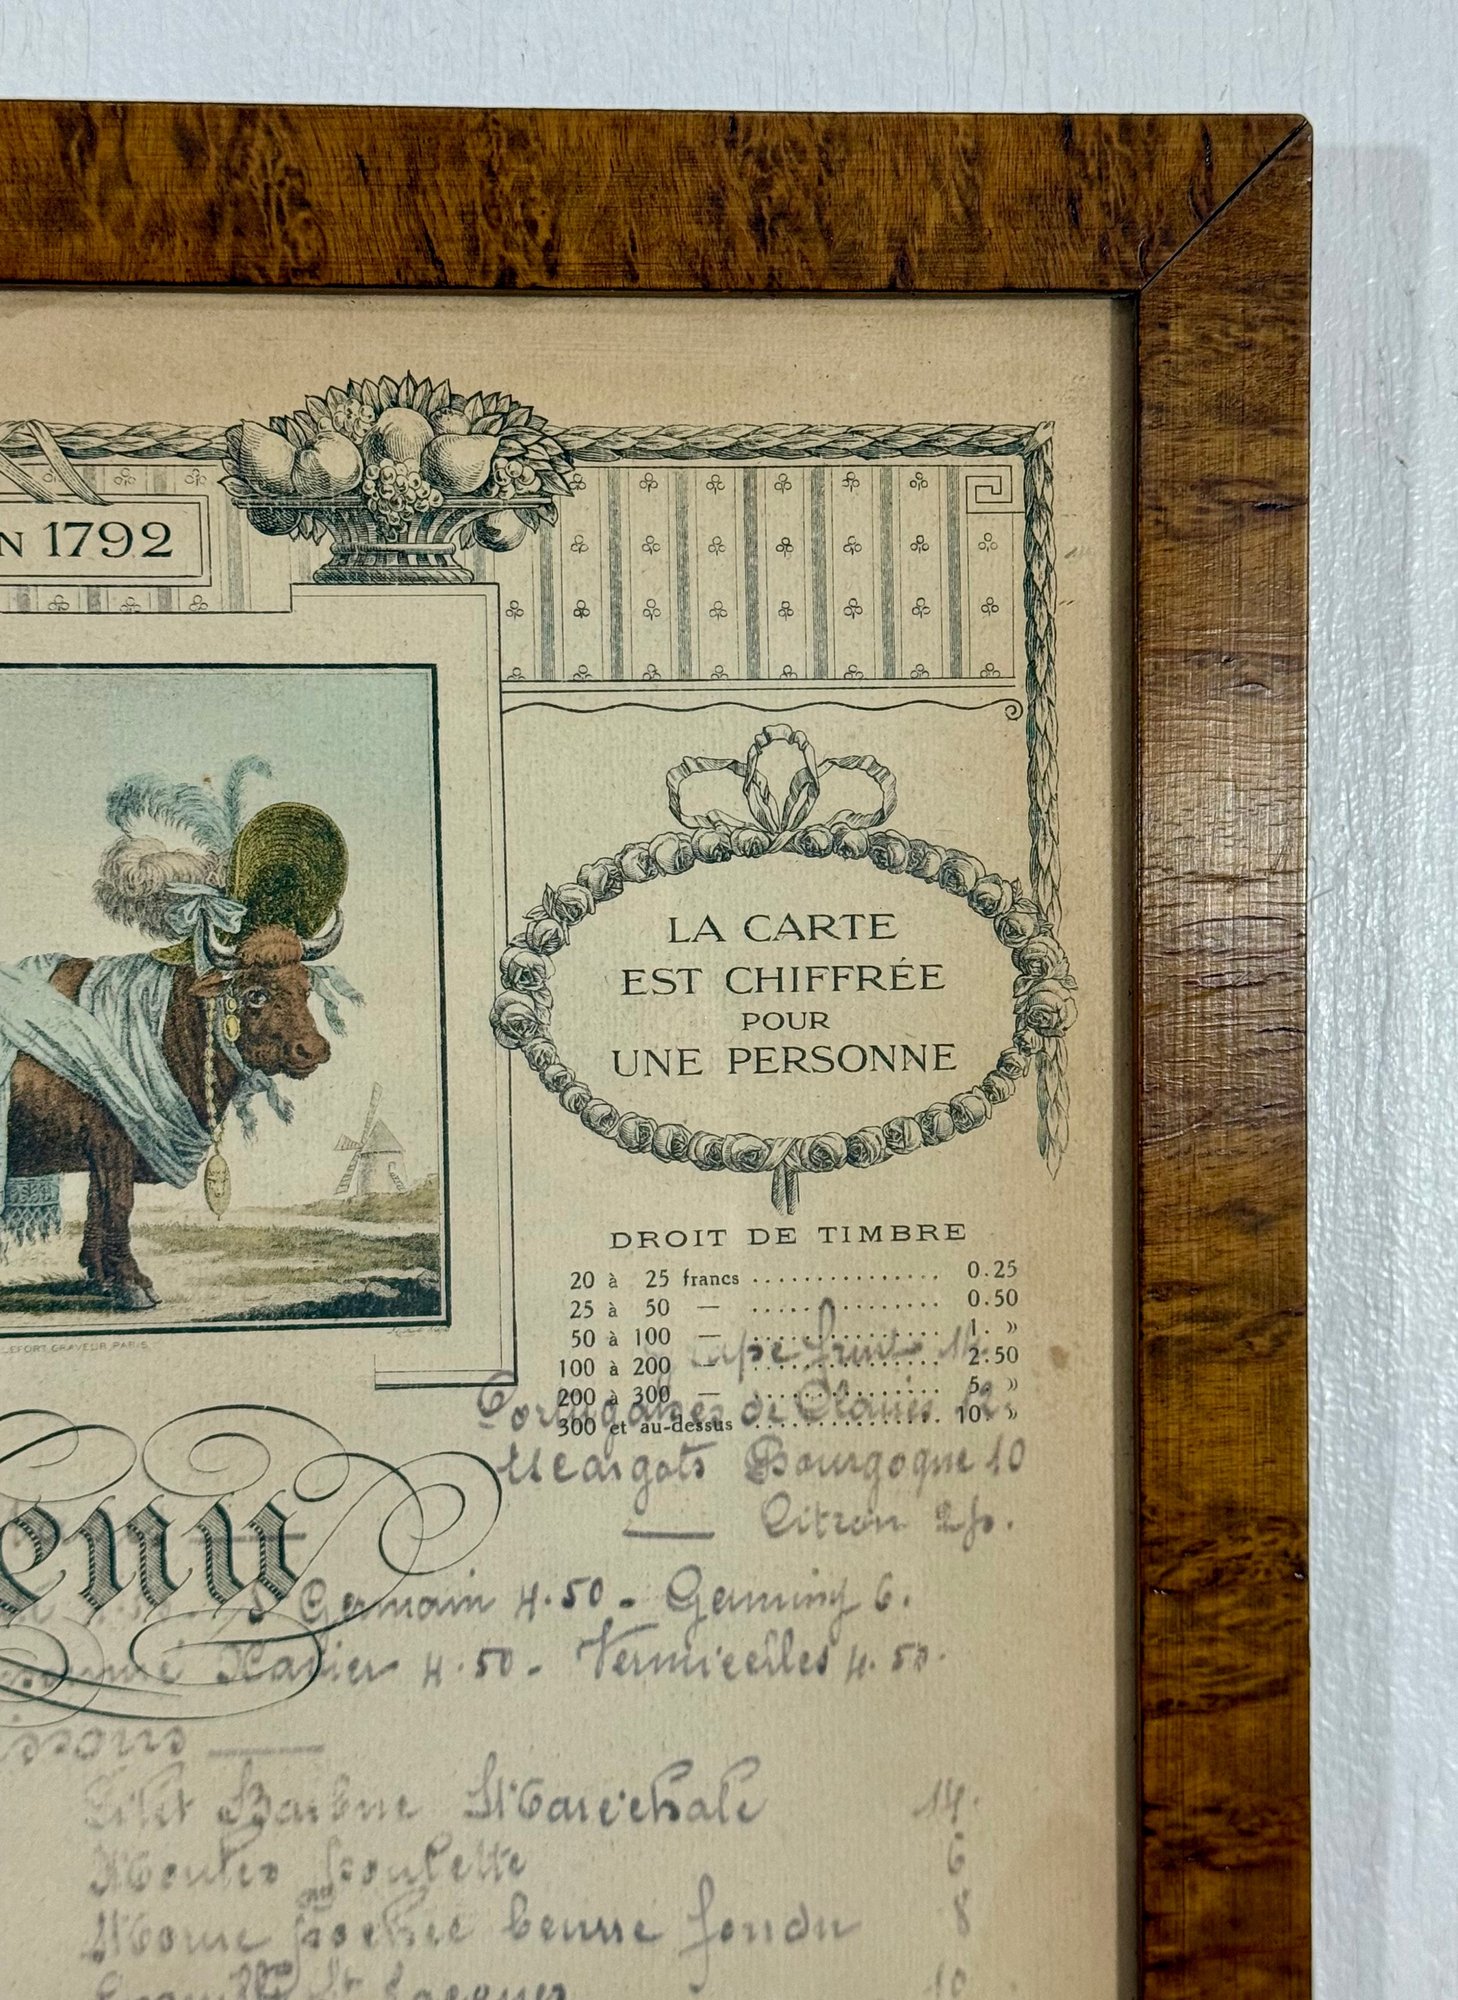 N 1792
LA CARTE
EST CHIFFRÉE
POUR
UNE PERSONNE
DROIT DE TIMBRE
20 à 25 francs ............... 0.25
25 à 50 — ............... 0.50
50 à 100 — ............... 1. »
100 à 200 — ............... 2.50
200 à 300 — ............... 5. »
300 et au-dessus ............... 10. »
Grape fruit 14
Portugaises de Claires 12
LEFORT, GRAVEUR, PARIS
enu
Escargots Bourgogne 10
— Citron 2f.
St Germain 4.50 - Germiny 6.
Xavier 4.50 - Vermicelles 4.50.
issons —
Filet Barbue Maréchale 14.
Moules poulette 6
Morue pochée beurre fondu 8
St Jacques 10